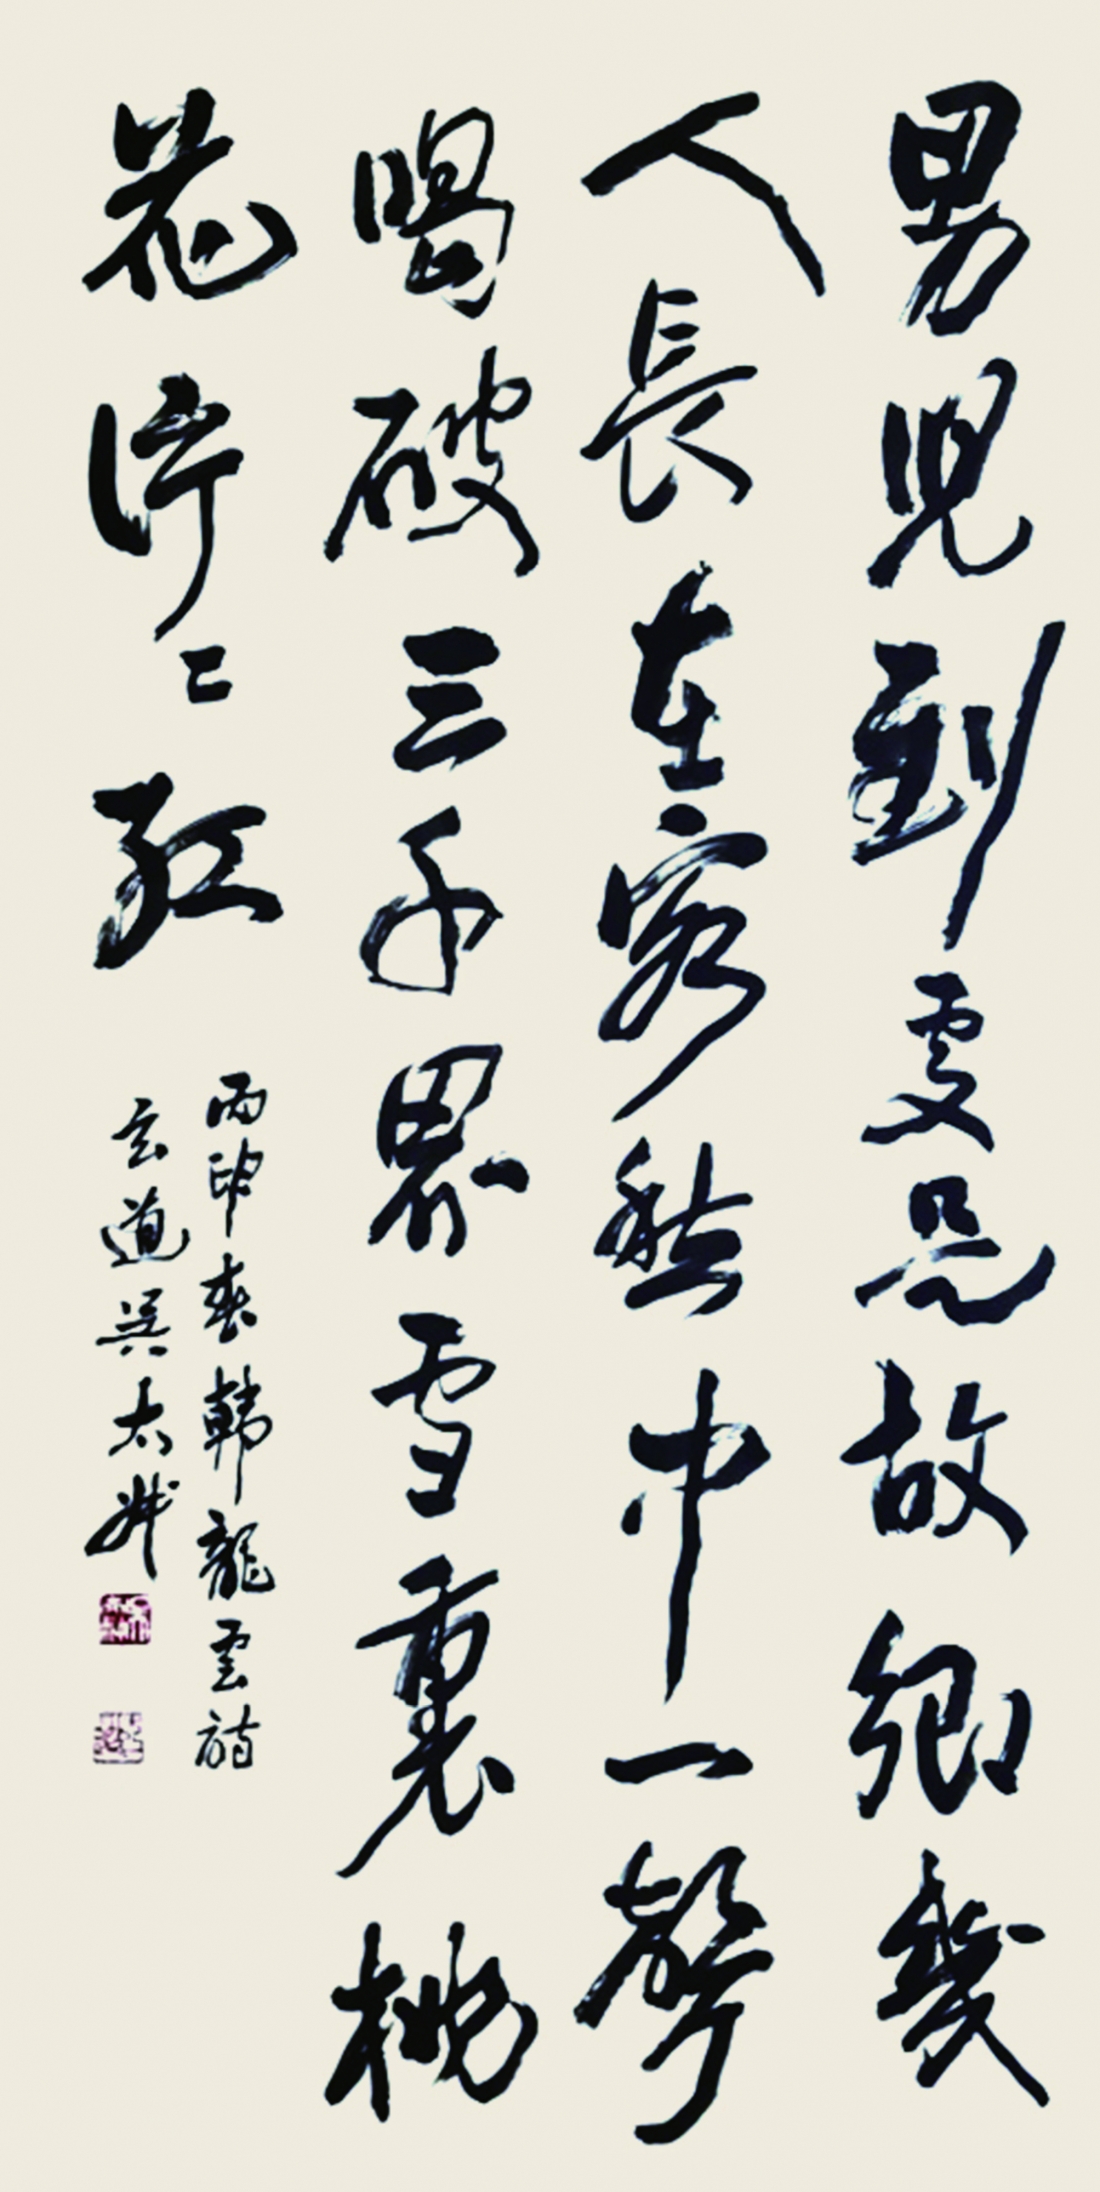 男兒到處是故鄉幾
人長在客愁中一聲
喝破三千界雪裏桃
花片〻紅
丙申春韓龍雲詩
玄道吳太